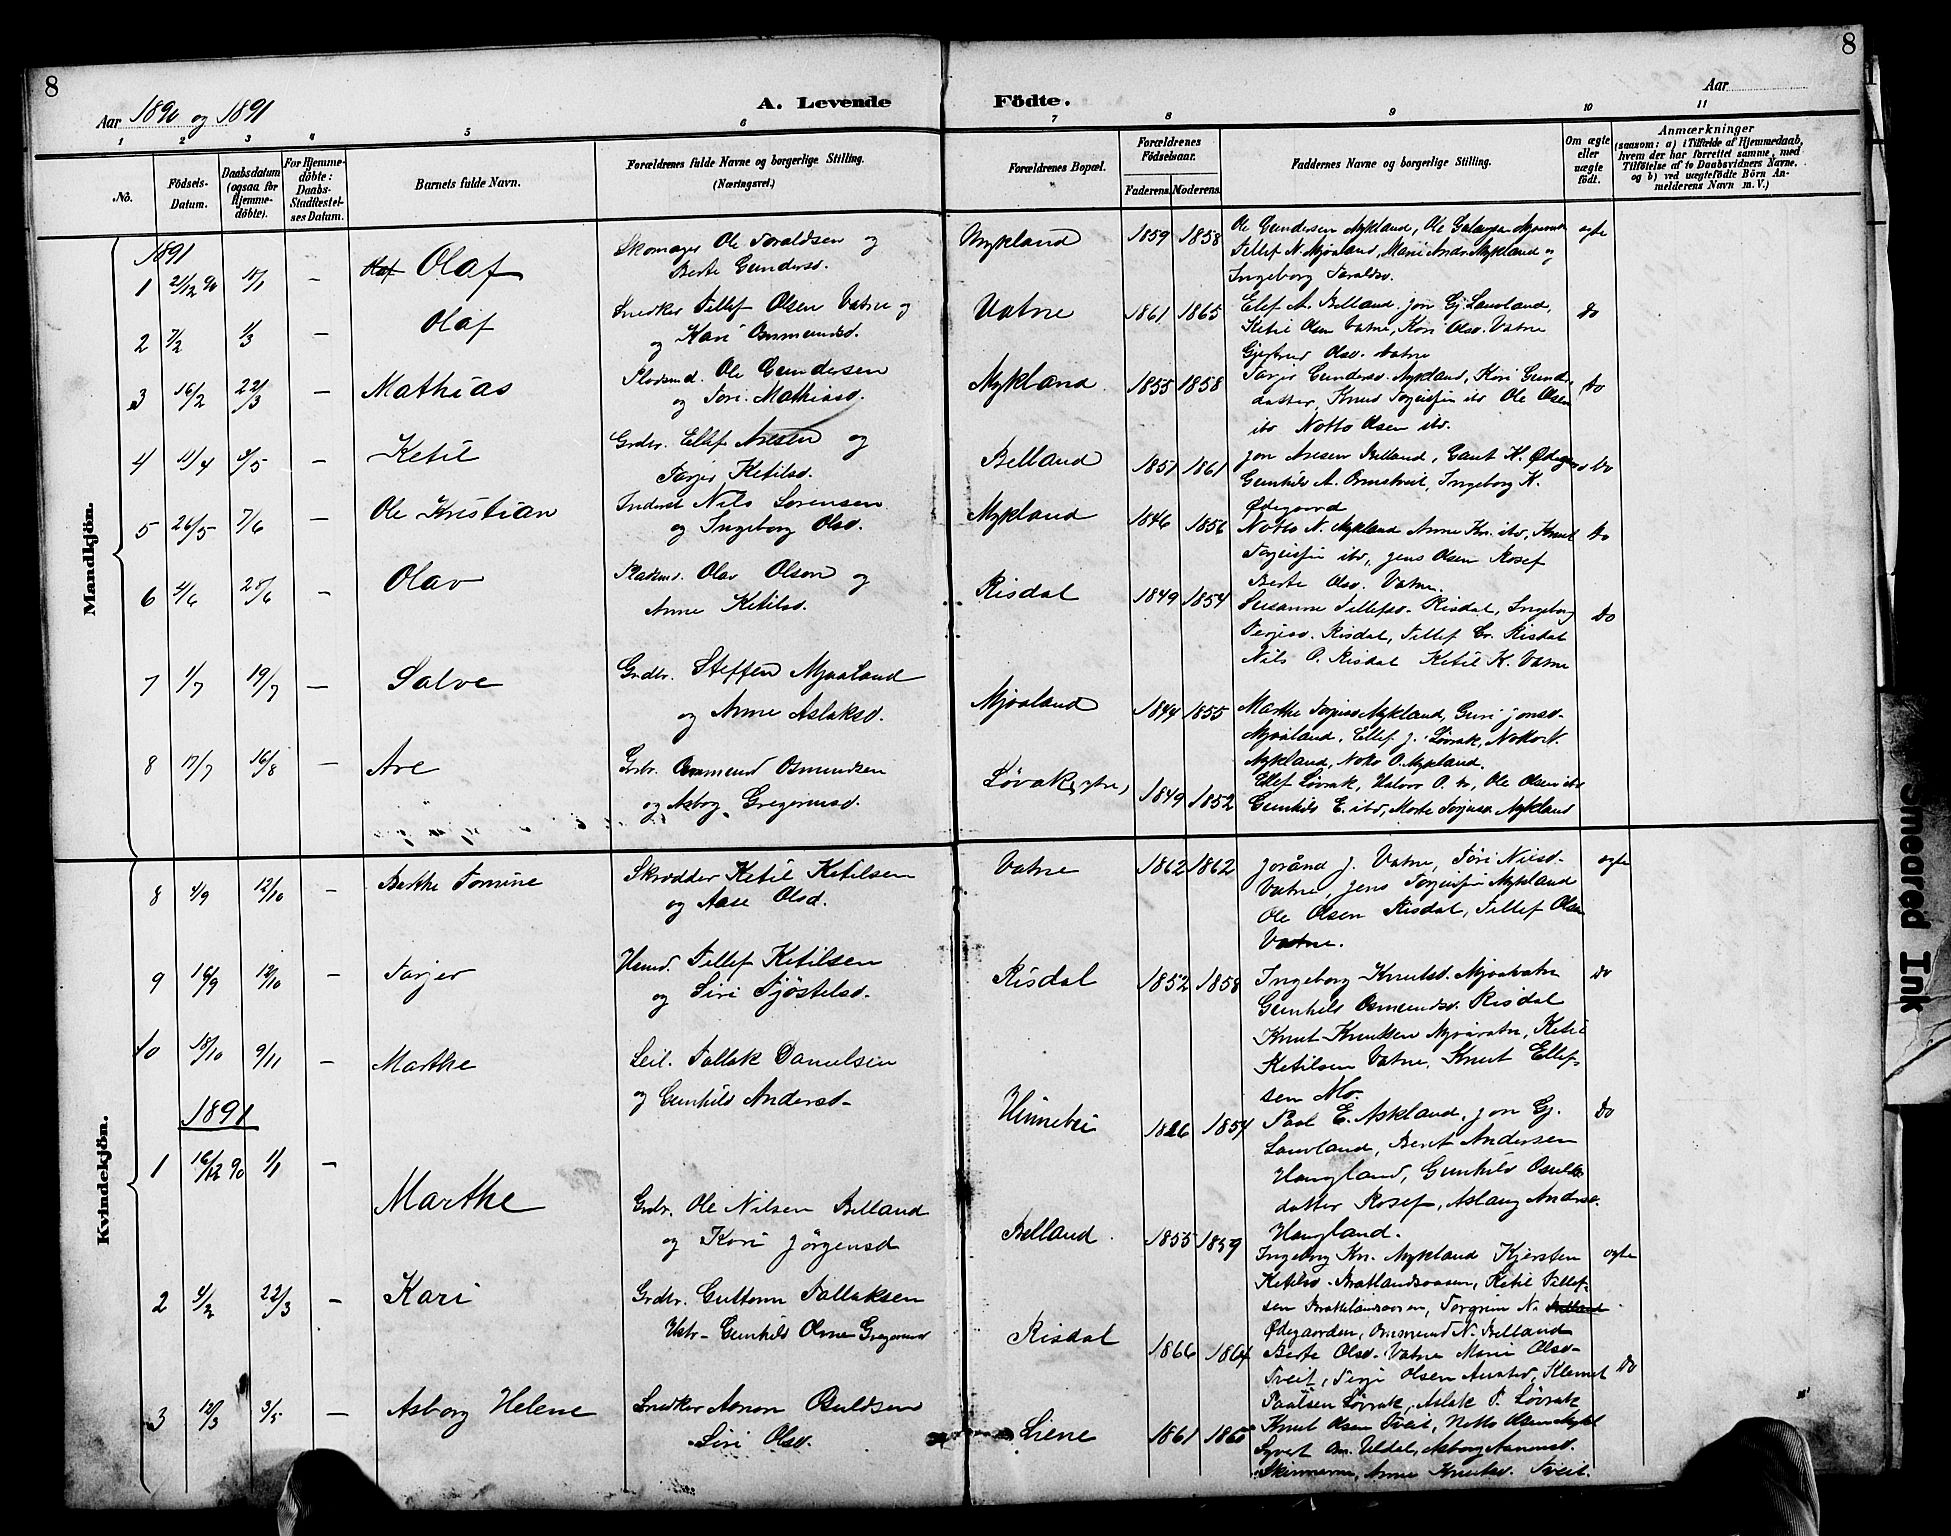 8
8
Aar 1890 og 1891
A. Levende
Födte.
Aar
1 2 3 4 5 6 7 8 9 10 11
No.
Födsels-Datum.
Daabsdatum (ogsaa for Hjemme-döbte).
For Hjemme-döbte: Daabs-Stadfæstel-ses Datum.
Barnets fulde Navn.
Forældrenes fulde Navne og borgerlige Stilling. (Næringsvei.)
Forældrenes Bopæl.
Forældrenes Födselsaar.
Faderens. Moderens.
Faddernes Navne og borgerlige Stilling.
Om ægte eller uægte födt.
Anmærkninger
(saasom: a) i Tilfælde af Hjemmedaab, hvem der har forrettet samme, med Tilföielse af to Daabsvidners Navne, og b) ved uægtefödte Börn An-melderens Navn m. V.)
Mandkjön.
1891
1 21/12 90 – Olaf
Skomager Ole Taraldsen og
Berte Gundersd.
Mykland 1859 1858
Ole Gundersen Mykland, Ole
Tellef N. Mjaaland, Mykland og
Ingeborg Taraldsd.
ægte
2 7/2 1/3 – Olaf
Snedker Tellef Olsen Vatne og
og Kari Osmundsd.
Vatne 1861 1865
Elef A. Belland, Jon Gj. Lauvland,
Ketil Olsen Vatne, Kari Olsd. Vatne
Gjertrud Olsd. Vatne
do
3 16/2 22/3 – Mathias
Pladsmd. Ole Gundersen
og Tori Mathiasd.
Mykland 1855 1858
Tarjer Gundersd. Mykland, Kari Gunders
datter, Knud Torgeisfin ibd Ole Olsen
ibd Notto Olsen ibd.
do
4 – Ketil
Grdbr. Ellef Aresen og
Tarjer Ketilsd.
Belland 1851 1861
Jon Aresen Belland, Gaut K. Ødegaard
Gunhild A. Ormstveit, Ingeborg K.
Ødegaard
do
5 26/5 7/6 – Ole Kristian
Inderst Nils Sorensen
og Ingeborg Olsd.
Mykland 1846 1856
Notto N. Mykland Anne Kn. ibd, Knut
Torgeisfin ibd, Jens Olsen Rosef
Berte Olsd. Vatne.
do
6 4/6 – Olav
Pladsmd. Olav Olsen og
Anne Ketilsd.
Risdal 1849 1854
Susanne Tellefsd. Risdal, Ingeborg
Terjesd. Risdal, Tellef Gr. Risdal
Nils O. Risdal Ketil K. Vatne
do
7 1/7 19/7 – Salve
Grdbr. Steffen Mjaaland
og Anne Aslaksd.
Mjaaland 1844 1855
Marthe Torjusd Mykland, Guri Jonsd.
Mjaaland, Ellef J. Løvrak, N.
Mykland, O. Mykland.
8 17/7 16/8 – Are
Grdbr. Osmund Osmundsen
og Asborg Gregoriusd.
Løvrak, ytre, 1849 1852
Ellef Løvrak, Halvor O. ib, Ole Olsen ibd
Gunhild E. ibd, Marte Torjusd Mykland
Kvindekjön.
8 4/9 12/10 – Berthe Tomine
Skrædder Ketil Ketilsen
og Aase Olsd.
Vatne 1862 1862
Jorånd J. Vatne, Tóri Nilsd.
Vatne, Jens Torgeisfin Mykland
Ole Olsen Risdal, Tellef Olsen
Vatne.
ægte
9 16/9 – Tarjer
Husmd. Tellef Ketilsen
og Siri Tjöstelsd.
Risdal 1852 1858
Ingeborg Knutsd. Mjaavatn
Gunhild Osmundsd. Risdal
Knut Knutsen Mjåvatn, Ketil
Ketilsen Vatne, Knut Ellef-
sen Mo.
do
10 18/10 9/11 – Marthe
Leil. Tallak Danielsen
og Gunhild Andersd.
Hinnebu 1826 1854
Paal E. Askland, Jon Gj.
Lauvland, Berit Andersen
Haugland, Gunhild Osulds
datter Rosef, Aslaug Andersd.
Haugland.
do
1891
1 16/12 90 1/1 – Marthe
Grdbr. Ole Nilsen Belland
og Kari Jörgensd
Belland. 1855 1859
Ingeborg Kn. Mykland Kjersten
Ketilsd. Bratlandsaasen, Ketil Tellef-
sen, Torgrim N.
Ødegaarden, Osmund N. Belland
ægte
2 22/3 – Kari
Grdbr. Guttorm Tallaksen
Hstr. Gunhild Gregoriusd
Risdal 1866 1864
Berte Olsd. Vatne Marie Olsd.
Tveit, Terje Olsen, Klemet
Paalsen Løvrak, Aslak P. Løvrak
do
3 12/3 3/5 – Asborg Helene
Snedker Osuldsen
Siri Olsd.
Liene 1861
Knut Olsen Tveit, Notto Olsen
Syvert Uldal, Asborg
Anne Knutsd. Tveit.
Smeared Ink